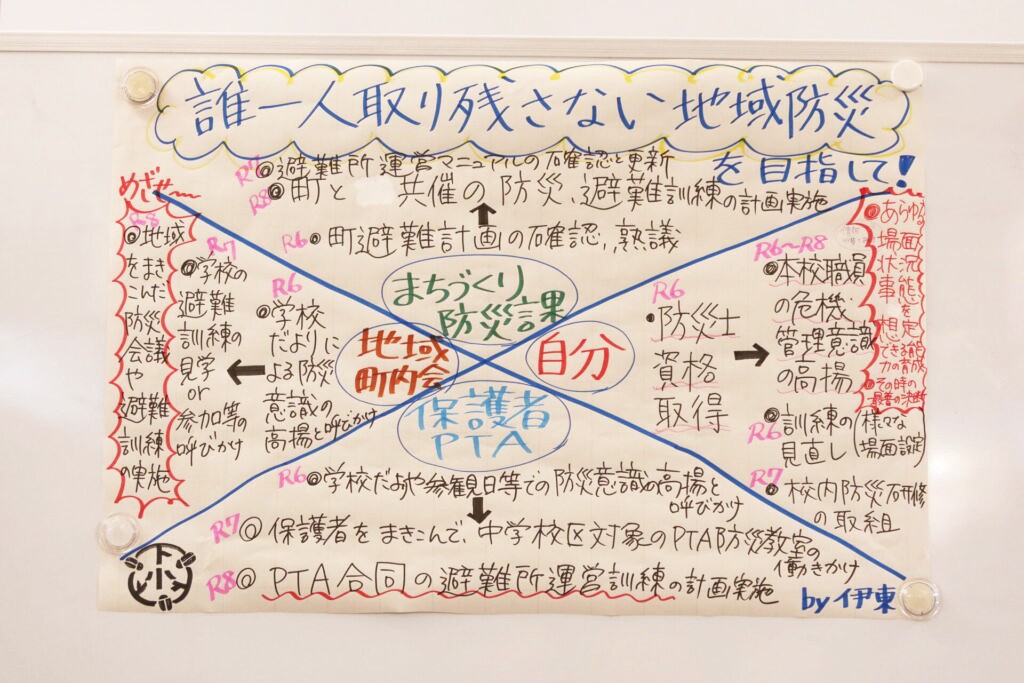 誰一人取り残さない地域防災
を目指して!
R7 ◎避難所運営マニュアルの確認と更新
R8 ◎町と 共催の防災、避難訓練の計画実施
R6 ・町避難計画の確認、熟議
まちづくり
防災課
めざせ〜
R8
◎地域
をまき
こんだ
防災
会議
や
避難
訓練
の実施
R7
◎学校の
避難
訓練の
見学
or
参加等の
呼びかけ
R6
◎学校
だよりに
よる防災
意識の
高揚と呼びかけ
地域
町内会
自分
R6
・防災士
資格
取得
R6〜R8
◎本校職員
の危機
管理意識
の高揚
R6
◎訓練の
見直し
(様々な
場面設定)
R7
・校内防災研修
の取組
◎あらゆる
場面
状況
事態を
想定
できる能
力の育成
◎その時の
最善の決断
保護者
PTA
R6 ◎学校だよりや参観日等での防災意識の高揚と
呼びかけ
R7 ◎保護者をまきこんで、中学校区対象のPTA防災教室の
働きかけ
R8 ◎PTA合同の避難所運営訓練の計画実施
下小
by伊東